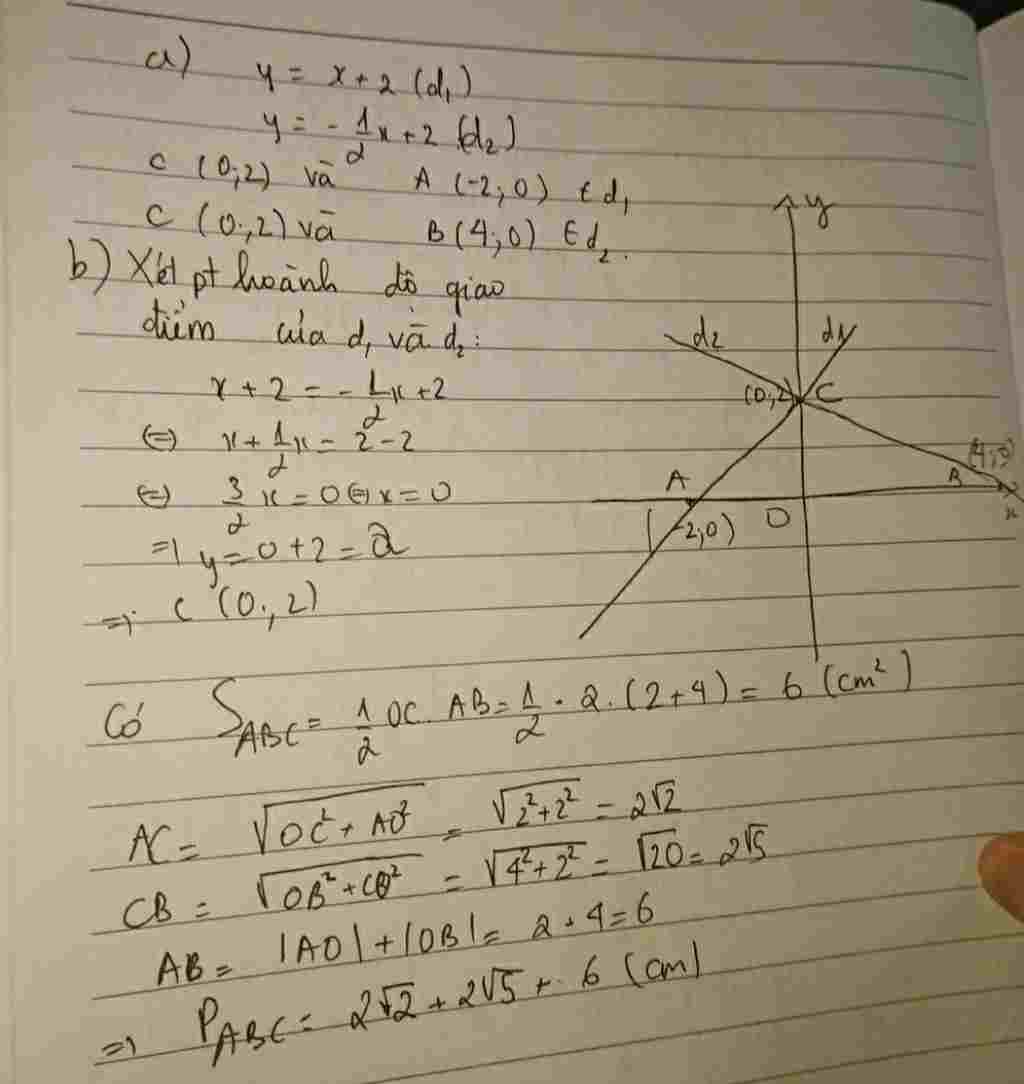 a) y = x + 2 (d₁)
y = -1/2 x + 2 (d₂)
C (0;2) và A (-2;0) ∈ d₁
C (0;2) và B (4;0) ∈ d₂.
b) Xét pt hoành độ giao
điểm của d₁ và d₂:
x + 2 = -1/2 x + 2
⇔ x + 1/2 x = 2 - 2
⇔ 3/2 x = 0 ⇔ x = 0
⇒ y = 0 + 2 = 2
⇒ C (0;2)
y
d₂ d₁
(0;2) C
(4;0)
A B
x
(-2;0) O
Có S_ABC = 1/2 OC. AB = 1/2 . 2. (2+4) = 6 (cm²)
AC = √(OC² + AO²) = √(2² + 2²) = 2√2
CB = √(OB² + CO²) = √(4² + 2²) = √20 = 2√5
AB = |AO| + |OB| = 2 + 4 = 6
⇒ P_ABC = 2√2 + 2√5 + 6 (cm)